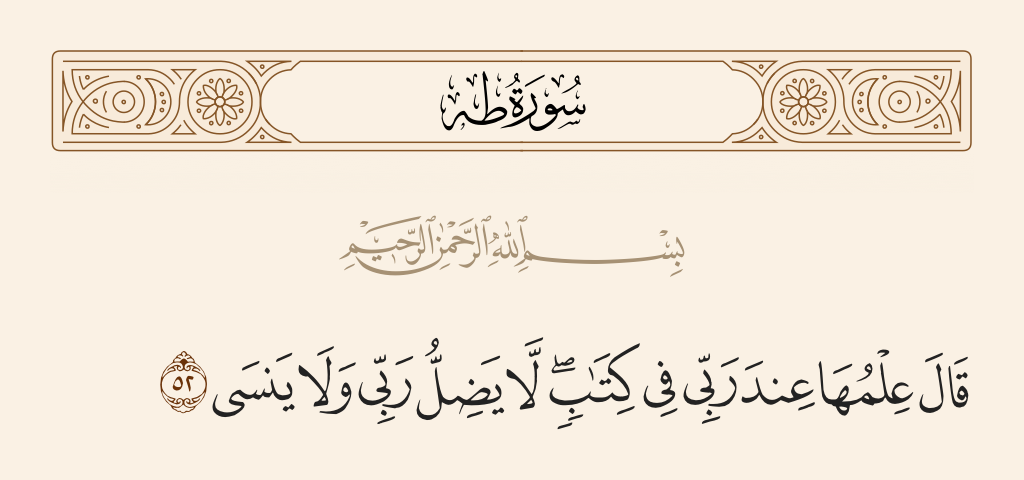 سُورَةُ طه
بِسْمِ ٱللَّهِ ٱلرَّحْمَٰنِ ٱلرَّحِيمِ
قَالَ عِلْمُهَا عِندَ رَبِّى فِى كِتَٰبٍۢ ۖ لَّا يَضِلُّ رَبِّى وَلَا يَنسَى ٥٢